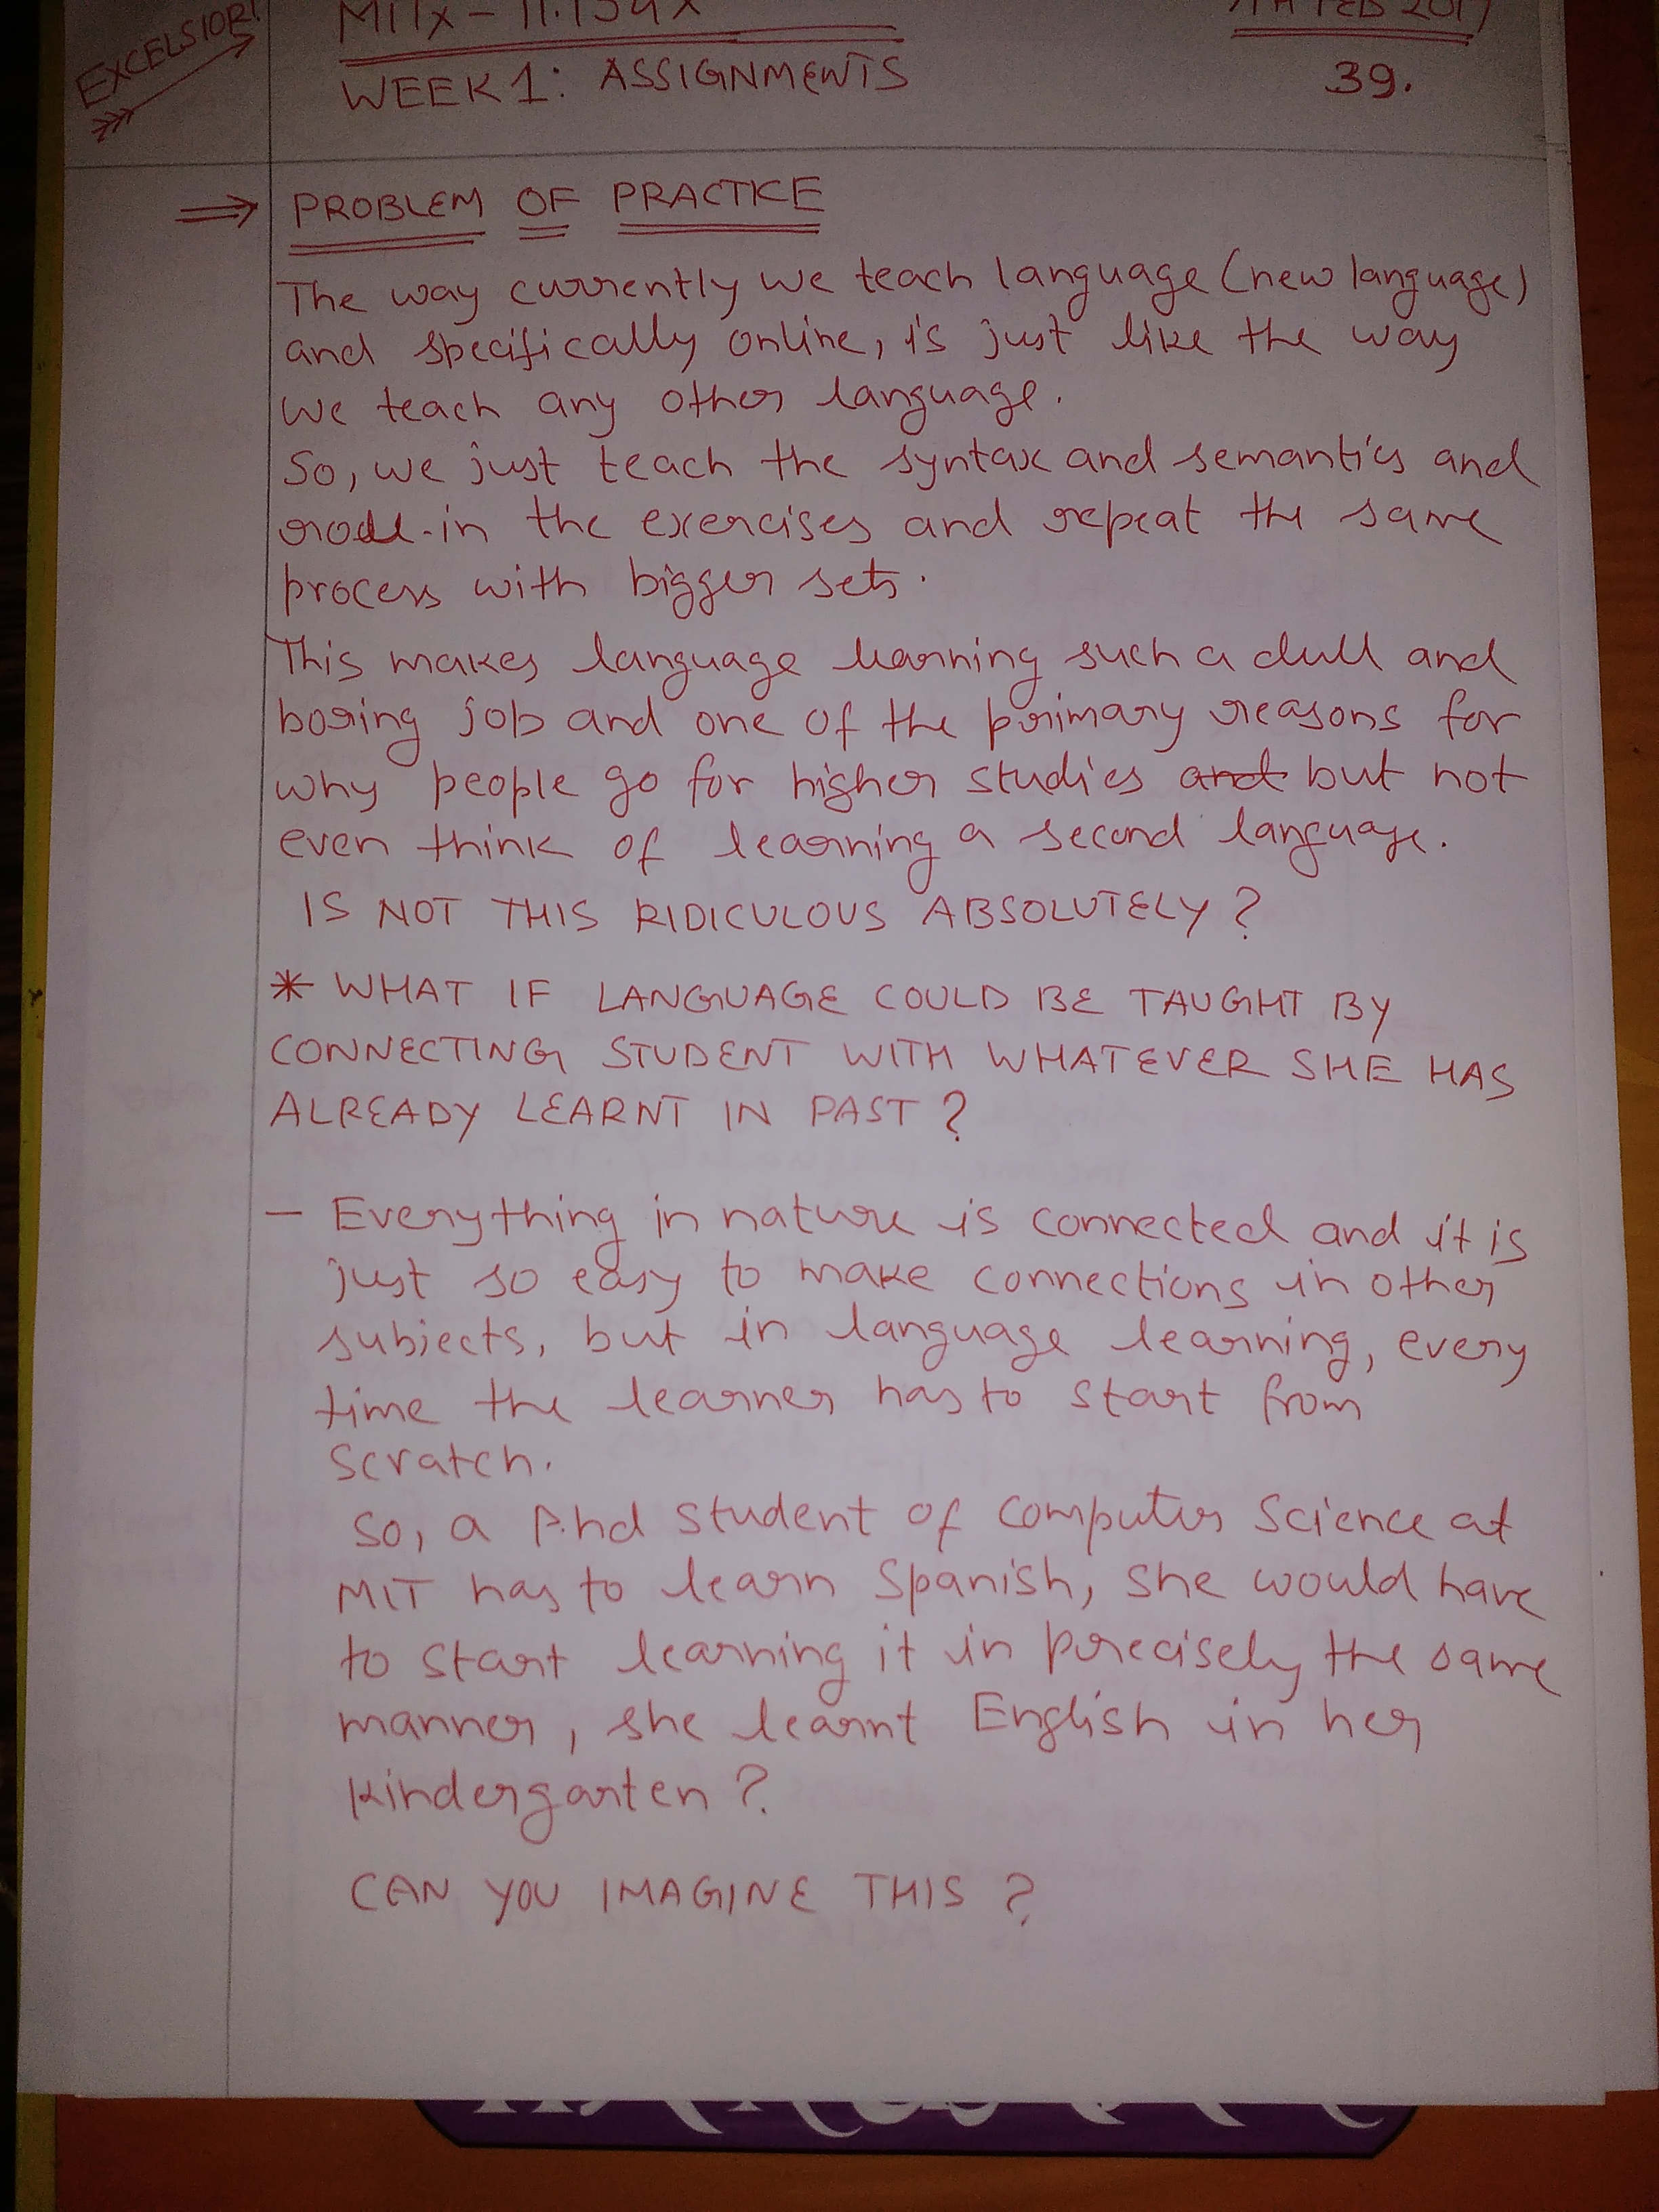 EXCELSIOR!
MITx - 11.154x
WEEK 1: ASSIGNMENTS
FEB 2017
39.
⇒ PROBLEM OF PRACTICE
The way currently we teach language (new language)
and specifically online, is just like the way
we teach any other language.
So, we just teach the syntax and semantics and
in the exercises and repeat the same
process with bigger sets.
This makes language learning such a dull and
boring job and one of the primary reasons for
why people go for higher studies and but not
even think of learning a second language.
IS NOT THIS RIDICULOUS ABSOLUTELY?
* WHAT IF LANGUAGE COULD BE TAUGHT BY
CONNECTING STUDENT WITH WHATEVER SHE HAS
ALREADY LEARNT IN PAST?
- Everything in nature is connected and it is
just so easy to make connections in other
subjects, but in language learning, every
time the learner has to start from
scratch.
So, a Phd student of Computer Science at
MIT has to learn Spanish, she would have
to start learning it in precisely the same
manner, she learnt English in her
kindergarten?
CAN YOU IMAGINE THIS?